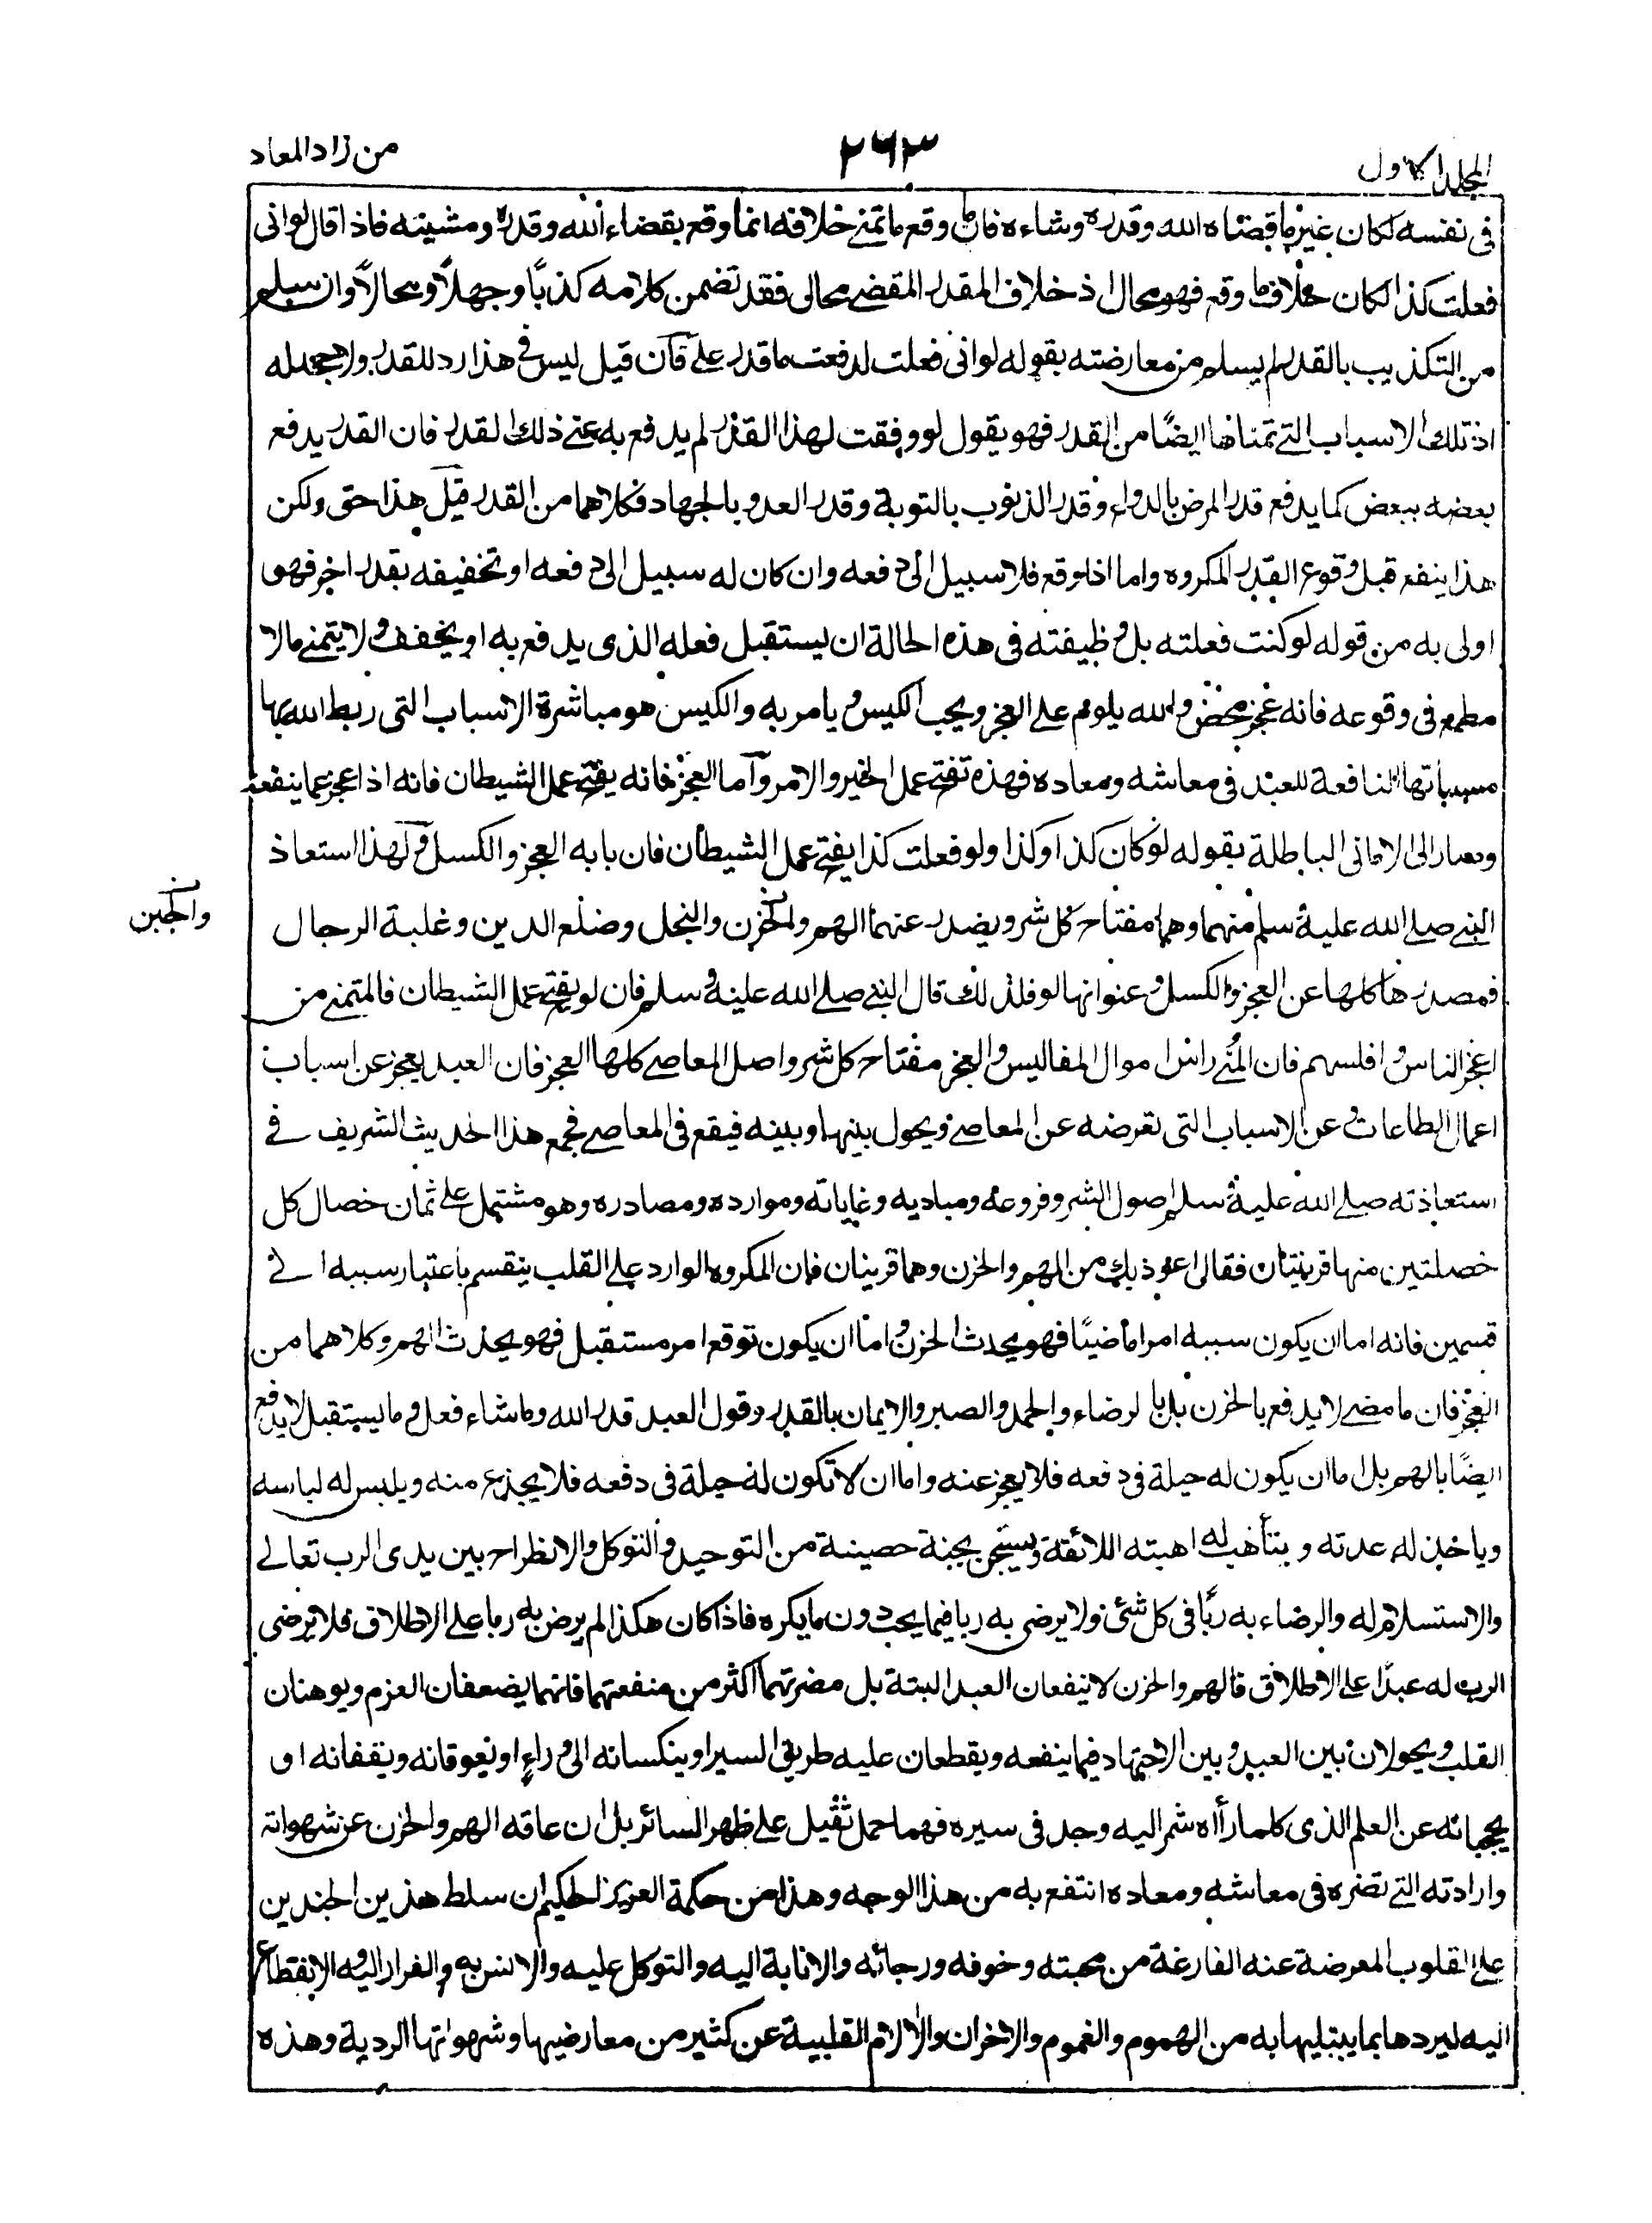 المجلد الاول
٢٦٣
من زاد المعاد
فى نفسه لكان غير ما قضاه الله وقدره وشاءه فان ما وقع ما تمنى خلافه انما وقع بقضاء الله وقدره ومشيته فاذا قال لو انى
فعلت كذا لكان خلاف ما وقع فهو محال اذ خلاف المقدر المقضى محال فقد تضمن كلامه كذبًا وجهلًا ومحالًا وان سلم
من التكذيب بالقدر لم يسلم من معارضته بقوله لو انى فعلت لدفعت ما قدر على فآن قيل ليس فى هذا رد للقدر ولا جحد له
اذ تلك الاسباب التى تمناها ايضًا من القدر فهو يقول لو وفقت لهذا القدر لم يدفع به عنى ذلك القدر فان القدر يدفع
بعضه ببعض كما يدفع قدر المرض بالدواء وقدر الذنوب بالتوبة وقدر العدو بالجهاد فكلاهما من القدر قيل هذا حق ولكن
هذا ينفع قبل وقوع القدر المكروه واما اذا وقع فلا سبيل الى دفعه وان كان له سبيل الى دفعه او تخفيفه بقدر اخر فهو
اولى به من قوله لو كنت فعلته بل وظيفته فى هذه الحالة ان يستقبل فعله الذى يدفع به او يخفف ولا يتمنى ما لا
مطمع فى وقوعه فانه عجز محض والله يلوم على العجز ويحب الكيس ويامر به والكيس هو مباشرة الاسباب التى ربط الله بها
مسبباتها النافعة للعبد فى معاشه ومعاده فهذه تفتح عمل الخير والامر وآما العجز فانه يفتح عمل الشيطان فانه اذا عجز عما ينفعه
وصار الى الامانى الباطلة بقوله لو كان كذا وكذا ولو فعلت كذا يفتح عمل الشيطان فان بابه العجز والكسل ولهذا استعاذ
النبى صلى الله عليه وسلم منهما وهما مفتاح كل شر ويصدر عنهما الهم والحزن والبخل وضلع الدين وغلبة الرجال
والجبن
فمصدرها كلها عن العجز والكسل وعنوانها لو فلذلك قال النبى صلى الله عليه وسلم فان لو يفتح عمل الشيطان فالمتمنى من
اعجز الناس وافلسهم فان المُنى راس اموال المفاليس والعجز مفتاح كل شر واصل المعاصى كلها العجز فان العبد يعجز عن اسباب
اعمال الطاعات وعن الاسباب التى تعرضه عن المعاصى ويحول بينها وبينه فيقع فى المعاصى فجمع هذا الحديث الشريف فى
استعاذته صلى الله عليه وسلم اصول الشر وفروعه ومباديه وغاياته وموارده ومصادره وهو مشتمل على ثمان خصال كل
خصلتين منها قرينتان فقال اعوذ بك من الهم والحزن وهما قرينان فان المكروه الوارد على القلب ينقسم باعتبار سببه الى
قسمين فانه اما ان يكون سببه امرا ماضيًا فهو يحدث الحزن واما ان يكون توقع امر مستقبل فهو يحدث الهم وكلاهما من
العجز فان ما مضى لا يدفع بالحزن بل بالرضاء والحمد والصبر والايمان بالقدر وقول العبد قدر الله وما شاء فعل وما يستقبل لا يدفع
ايضًا بالهم بل اما ان يكون له حيلة فى دفعه فلا يعجز عنه واما ان لا تكون له حيلة فى دفعه فلا يجزع منه ويلبس له لباسه
وياخذ له عدته ويتأهب له اهبته اللائقة ويستجن بجنة حصينة من التوحيد والتوكل والانطراح بين يدى الرب تعالى
والاستسلام له والرضاء به ربًا فى كل شئ ولا يرضى به ربا فيما يحب دون ما يكره فاذا كان هكذا لم يرض به ربا على الاطلاق فلا يرضى
الرب له عبدًا على الاطلاق فالهم والحزن لا ينفعان العبد البتة بل مضرتهما اكثر من منفعتهما فانهما يضعفان العزم ويوهنان
القلب ويحولان بين العبد وبين الاجتهاد فيما ينفعه ويقطعان عليه طريق السير او ينكسانه الى وراء او يعوقانه ويقفانه او
يحجبانه عن العلم الذى كلما رأاه شمر اليه وجد فى سيره فهما حمل ثقيل على ظهر السائر بل ان عاقه الهم والحزن عن شهواته
وارادته التى تضره فى معاشه ومعاده انتفع به من هذا الوجه وهذا من حكمة العزيز الحكيم ان سلط هذين الجندين
على القلوب المعرضة عنه الفارغة من محبته وخوفه ورجائه والانابة اليه والتوكل عليه والانس به والفرار اليه والانقطاع
اليه ليردها بما يبتليها به من الهموم والغموم والاخزان والالام القلبية عن كثير من معارضيها وشهواتها الردية وهذه